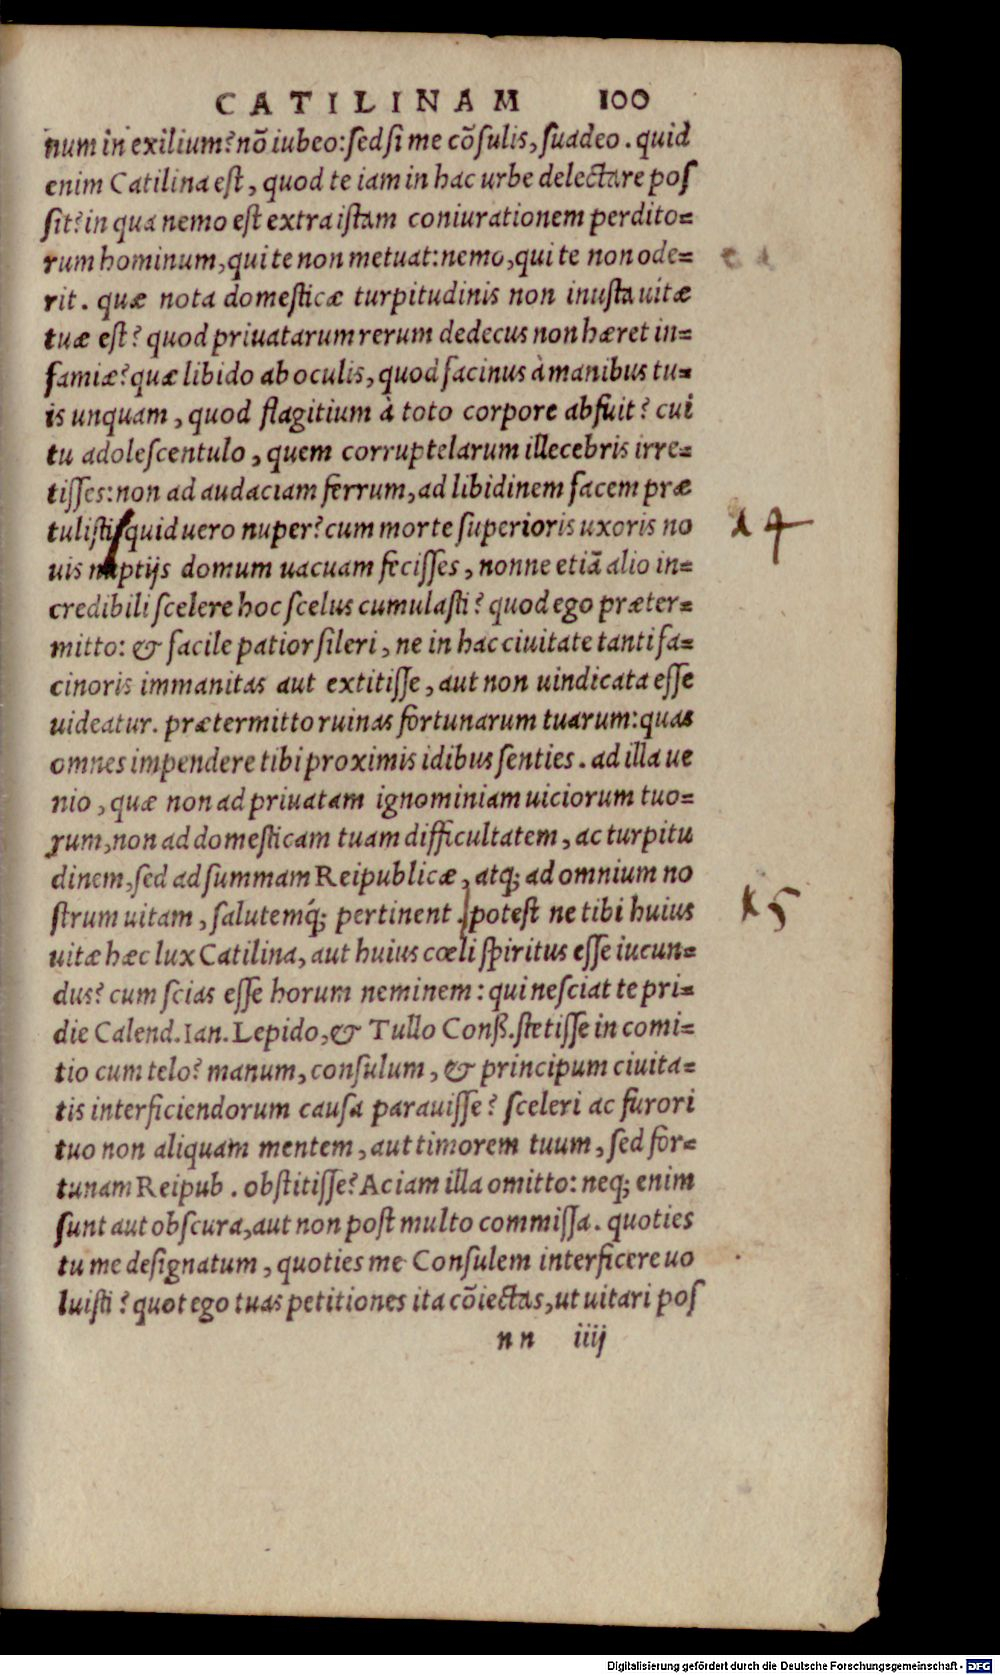 CATILINAM 100
num in exilium? nõ iubeo: sed si me cõsulis, suadeo. quid
enim Catilina est, quod te iam in hac urbe delectare pos
sit? in qua nemo est extra istam coniurationem perdito=
rum hominum, qui te non metuat: nemo, qui te non ode=
rit. quæ nota domesticæ turpitudinis non inusta uitæ
tuæ est? quod priuatarum rerum dedecus non hæret in=
famiæ? quæ libido ab oculis, quod facinus à manibus tu=
is unquam, quod flagitium à toto corpore abfuit? cui
tu adolescentulo, quem corruptelarum illecebris irre=
tisses: non ad audaciam ferrum, ad libidinem facem præ
tulisti? quid uero nuper? cum morte superioris uxoris no
14
uis nuptijs domum uacuam fecisses, nonne etiã alio in=
credibili scelere hoc scelus cumulasti? quod ego præter=
mitto: & facile patior sileri, ne in hac ciuitate tanti fa=
cinoris immanitas aut extitisse, aut non uindicata esse
uideatur. prætermitto ruinas fortunarum tuarum: quas
omnes impendere tibi proximis idibus senties. ad illa ue
nio, quæ non ad priuatam ignominiam uiciorum tuo=
rum, non ad domesticam tuam difficultatem, ac turpitu
dinem, sed ad summam Reipublicæ, atq; ad omnium no
strum uitam, salutemq́; pertinent. potest ne tibi huius
15
uitæ hæc lux Catilina, aut huius cœli spiritus esse iucun=
dus? cum scias esse horum neminem: qui nesciat te pri=
die Calend. Ian. Lepido, & Tullo Conß. stetisse in comi=
tio cum telo? manum, consulum, & principum ciuita=
tis interficiendorum causa parauisse? sceleri ac furori
tuo non aliquam mentem, aut timorem tuum, sed for=
tunam Reipub. obstitisse? Ac iam illa omitto: neq; enim
sunt aut obscura, aut non post multo commissa. quoties
tu me designatum, quoties me Consulem interficere uo
luisti? quot ego tuas petitiones ita cõiectas, ut uitari pos
nn iiij
Digitalisierung gefördert durch die Deutsche Forschungsgemeinschaft - DFG